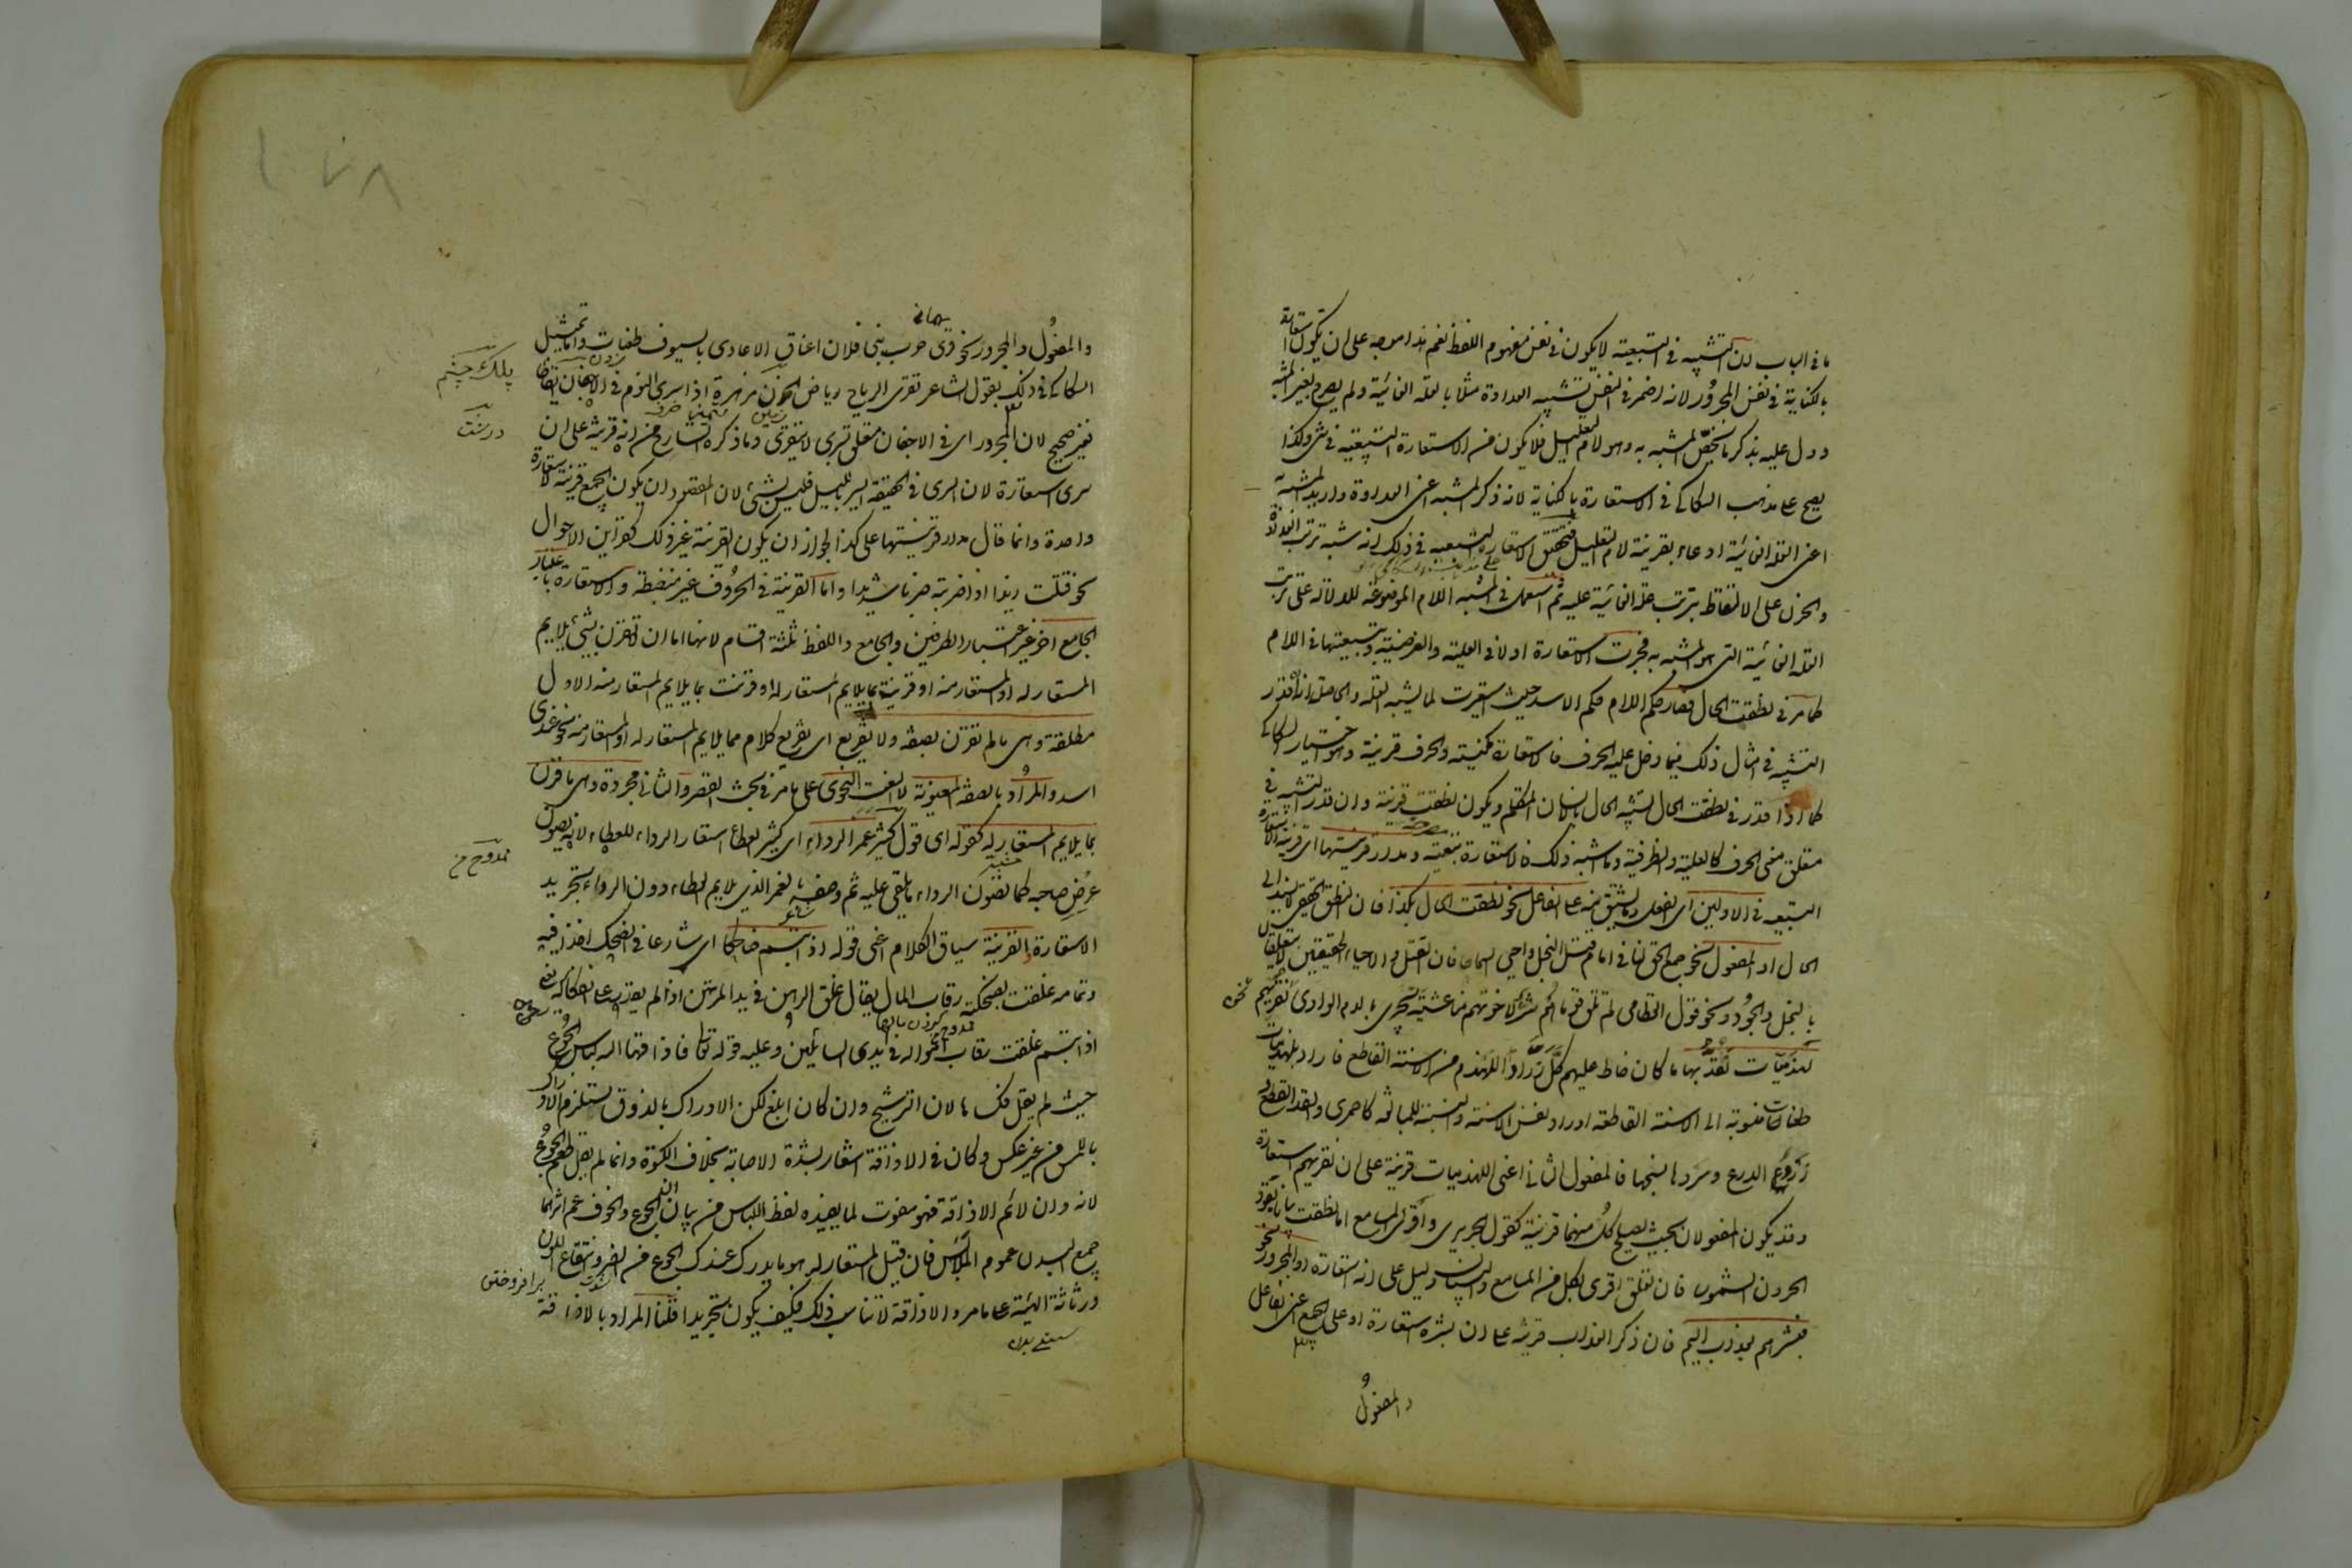 ما فى الباب لان التشبيه فى التبعية لا يكون فى نفس مفهوم اللفظ نعم هذا موجه على ان يكون استعارة
بالكناية فى نفس المجرور لانه اضمر فى النفس تشبيه العداوة مثلا بالعلة الغائية ولم يصرح بغير المشبه
ودل عليه بذكر ما يخص المشبه به وهو لام التعليل فلا يكون من الاستعارة التبعية فى شئ وكذا
يصح على مذهب السكاكى فى الاستعارة بالكناية لانه ذكر المشبه اعنى العداوة واريد المشبه به
اعنى العلة الغائية ادعاء بقرينة لام التعليل فتحقق الاستعارة التبعية فى ذلك انه شبه ترتب العداوة
والحزن على الالتقاط بترتب علة الغائية عليه ثم استعمل فى المشبه اللام الموضوعة للدلالة على ترتب
العلة الغائية التى هو المشبه به فجرت الاستعارة اولا فى العلية والغرضية وبتبعيتها فى اللام
كما مر فى نطقت الحال فصار حكم اللام حكم الاسد حيث استعيرت لما يشبه العلة والحاصل انه ان قدر
التشبيه فى امثال ذلك فيما دخل عليه الحرف فالاستعارة مكنية والحرف قرينة وهو اختيار السكاكى
كما اذا قدر فى نطقت الحال تشبيه الحال بالانسان المتكلم ويكون نطقت قرينة وان قدر التشبيه فى
متعلق معنى الحرف كالعلية والظرفية وما اشبه ذلك فالاستعارة تبعية ومدار قرينتها اى قرينة الاستعارة
التبعية فى الاولين اى الفعل وما يشتق منه على الفاعل نحو نطقت الحال بكذا فان النطق الحقيقى لا يسند الى
الحال او المفعول نحو جمع الحق لنا فى امام قتل البخل واحيى السماحا فان القتل والاحياء الحقيقيين لا يتعلقان
بالبخل والجود ونحو قول القطامى لم تلق قوما هم شر لاخوتهم منا عشية يجرى بالدم الوادى نقريهم
لهذميات نقد بها ما كان خاط عليهم كل زراد اللهذم من الاسنة القاطع فاراد بلهذميات
طعنات منسوبة الى الاسنة القاطعة او اراد نفس الاسنة والنسبة للمبالغة كاحمرى والقد القطع و
زرد الدرع وسردها نسجها فالمفعول الثانى اعنى اللهذميات قرينة على ان نقريهم استعارة
وقد يكون المفعولان بحيث يصلح كل منهما قرينة كقول الحريرى واقرى المسامع اما نطقت بيانا يقود
الحرون الشموسا فان تعلق اقرى بكل من المسامع والبيان دليل على انه استعارة او المجرور نحو
فبشرهم بعذاب اليم فان ذكر العذاب قرينة على ان بشر استعارة او على الجميع اعنى الفاعل
والمفعول
والمفعول والمجرور نحو قرى حرب بنى فلان اعناق الاعادى بالسيوف طعنات واما تمثيل
السكاكى فى ذلك بقول الشاعر تقرى الرياح رياض الحزن مزهرة اذا سرى النوم فى الاجفان ايقاظا
فغير صحيح لان المجرور اى فى الاجفان متعلق بسرى لا بتقرى وما ذكره الشارح من انه قرينة على ان
سرى استعارة لان السرى فى الحقيقة السير بالليل فليس بشئ لان المقصود ان يكون الجميع قرينة لاستعارة
واحدة وانما قال مدار قرينتها على كذا لجواز ان يكون القرينة غير ذلك كقراين الاحوال
نحو قتلت زيدا اذا ضربته ضربا شديدا واما القرينة فى الحروف فغير منضبطة والاستعارة باعتبار
آخر غير اعتبار الطرفين والجامع واللفظ ثلثة اقسام لانها اما ان لا تقترن بشئ يلايم
المستعار له او المستعار منه او قرنت بما يلايم المستعار له او قرنت بما يلايم المستعار منه الاول
مطلقة وهى ما لم تقترن بصفة ولا تفريع اى تفريع كلام مما يلايم المستعار له او المستعار منه نحو عندى
اسد والمراد بالصفة المعنوية لا النعت النحوى على ما مر فى بحث القصر والثانى مجردة وهى ما قرن
بما يلايم المستعار له كقوله اى قول كثير غمر الرداء اى كثير العطاء استعار الرداء للعطاء لانه يصون
عرض صاحبه كما يصون الرداء ما يلقى عليه ثم وصفه بالغمر الذى يلايم العطاء دون الرداء تجريدا
الاستعارة والقرينة سياق الكلام اعنى قوله اذا تبسم ضاحكا اى شارعا فى الضحك آخذا فيه
وتمامه غلقت بضحكته رقاب المال يقال غلق الرهن فى يد المرتهن اذا لم يقدر على انفكاكه يعنى
اذا تبسم غلقت رقاب امواله فى ايدى السائلين وعليه قوله تعالى فاذاقها الله لباس الجوع
حيث لم يقل فكساها لان الترشيح وان كان ابلغ لكن الادراك بالذوق يستلزم الادراك
باللمس من غير عكس وكان فى الاذاقة اشعار بشدة الاصابة بخلاف الكسوة وانما لم يقل طعم الجوع
لانه وان لائم الاذاقة فهو مفوت لما يفيده لفظ اللباس من بيان ان الجوع والخوف عم اثرهما
جميع البدن عموم الملابس فان قيل المستعار له هو ما يدرك عند الجوع من الضر وانتقاع اللون
ورثاثة الهيئة على ما مر والاذاقة لا تناسب ذلك فكيف يكون تجريدا قلنا المراد بالاذاقة
پلك چشم
درشت
ممدوح من
برافروختن